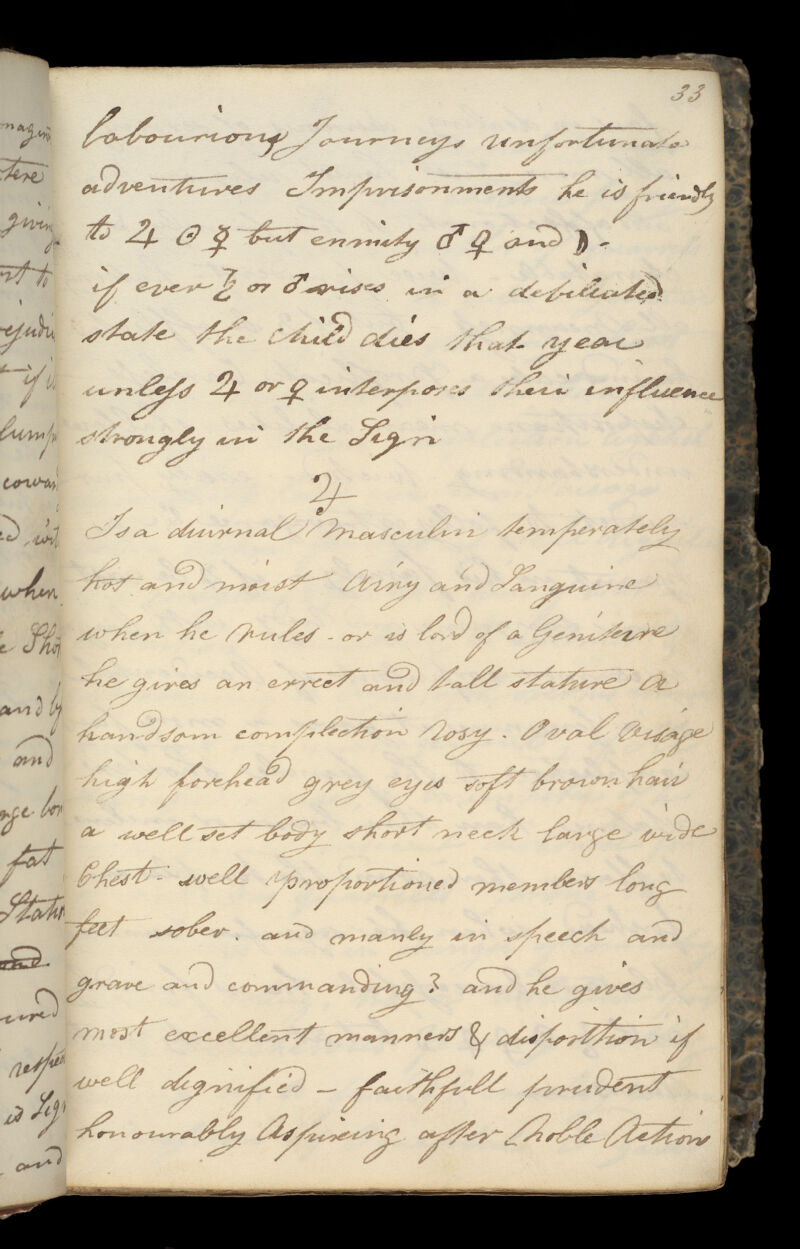 33
labourious Journeys unfortunate
adventures Imprisonments he is friendly
to ♃ ☉ ☿ but enmity ♂ ♀ and ☽ -
if ever ♄ or ♂ rises in a debiliated
state the child dies that year
unless ♃ or ♀ interposes their influence
strongly in the Sign
♃
Is a diurnal Masculin temperately
hot and moist Airy and Sanguine
when he rules - or is lord of a Geniture
he gives an errect and tall stature a
handsom complection rosy . Oval Visage
high forehead grey eyes soft brown hair
a well set body short neck large wide
Chest - well proportioned members long
feet sober . and manly in speech and
grave and commanding ? and he gives
most excellent manners & disposition if
well dignified - faithfull prudent
honourably Aspireing after Noble Actions
tere
giving
and by
and
fat
and
is Sig
and
when